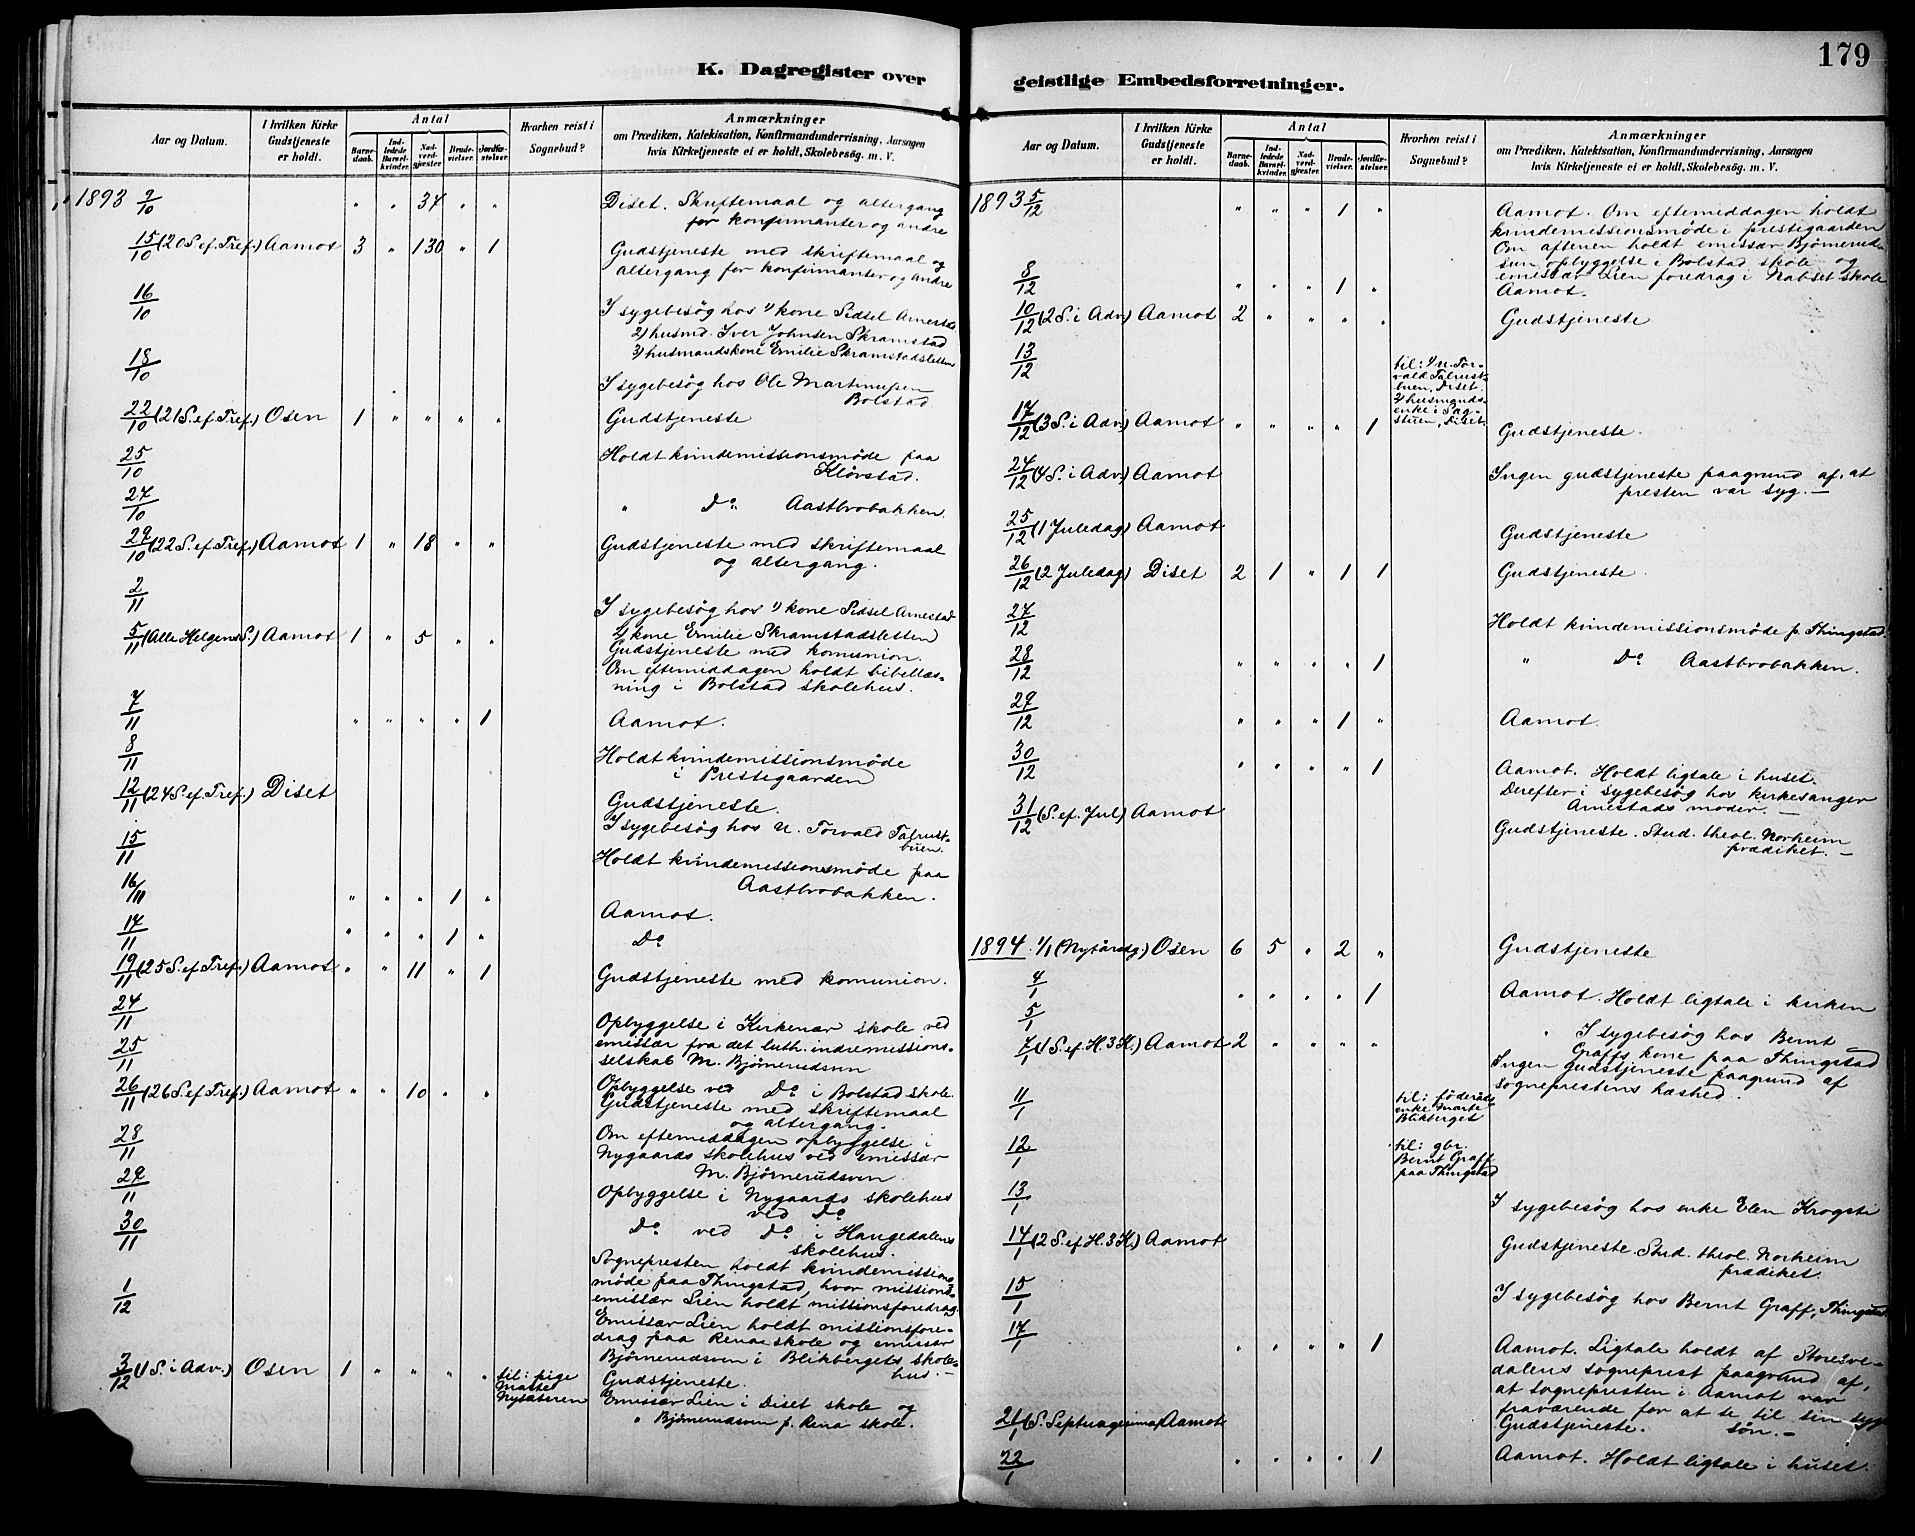 K. Dagregister over
Aar og Datum.
I hvilken Kirke Gudstjeneste er holdt.
Antal
Barnedaab.
Indledede Barselkvinder.
Nadverdgjester.
Brudevielser.
Jordfæstelser.
Hvorhen reist i Sognebud?
Anmærkninger
om Prædiken, Katekisation, Konfirmandundervisning, Aarsagen
hvis Kirketjeneste ei er holdt, Skolebesøg. m. V.
1893 9/10 " " 37 " " Diset. Skriftemaal og altergang
for konfirmanter og andre
15/10 (20 S. ef. Tref.) Aamot 3 " 130 " 1 Gudstjeneste med skriftemaal og
altergang for konfirmanter og andre
16/10 I sygebesøg hos 1) kone Sidsel Arnestad
2) husmd. Iver Johnsen Skramstad
3) husmandskone Emilie Skramstadsletten
18/10 I sygebesøg hos Ole Martinussen
Bolstad.
22/10 (21 S. ef. Tref.) Osen 1 " " " " Gudstjeneste
25/10 Holdt kvindemissionsmøde paa
Kløvstad.
27/10 " Do. Aastbrobakken.
29/10 (22 S. ef. Tref.) Aamot 1 " 18 " " Gudstjeneste med skriftemaal
og altergang.
2/11 I sygebesøg hos 1) kone Sidsel Arnestad
2) kone Emilie Skramstadsletten
5/11 (Alle Helgens S.) Aamot 1 " 5 " " Gudstjeneste med komunion.
Om eftemiddagen holdt bibellæs-
ning i Bolstad skolehus.
7/11 " " " " 1 Aamot.
8/11 Holdt kvindemissionsmøde
i Prestegaarden
12/11 (24 S. ef. Tref.) Diset Gudstjeneste.
I sygebesøg hos U. Torvald Talrust-
buen.
15/11 Holdt kvindemissionsmøde paa
Aastbrobakken.
16/11 " " " 1 " Aamot.
17/11 " " " 1 " Do
19/11 (25 S. ef. Tref.) Aamot " " 11 " 1 Gudstjeneste med komunion.
24/11 Opbyggelse i Kirkenær skole ved
emissær fra det luth. indremissions-
selskab M. Bjørnerudsven
25/11 Opbyggelse ved Do i Bolstad skole.
26/11 (26 S. ef. Tref.) Aamot " " 10 " " Gudstjeneste med skriftemaal
og altergang.
Om eftemiddagen opbyggelse i
Nygaards skolehus ved emissær
M. Bjørnerudsven
28/11 Opbyggelse i Nygaards skolehus
ved Do
29/11 Do ved Do i Haugedalens
skolehus.
30/11 Sognepresten holdt kvindemissions-
møde paa Thingstad, hvor missions-
emissær Lien holdt missionsforedrag.
1/12 Emissær Lien holdt missionsfore-
drag paa Rena skole og emissær
Bjørnerudsven i Blikbergets skole-
hus.—
3/12 (1 S. i Adv.) Osen 1 " " " " til: pige
Mathe
Nysæteren Gudstjeneste.
Emissær Lien i Diset skole og
" Bjørnerudsven p. Rena skole.
179
geistlige Embedsforretninger.
Aar og Datum.
I hvilken Kirke Gudstjeneste er holdt.
Antal
Barnedaab.
Indledede Barselkvinder.
Nadverdgjester.
Brudevielser.
Jordfæstelser.
Hvorhen reist i Sognebud?
Anmærkninger
om Prædiken, Katekisation, Konfirmandundervisning, Aarsagen
hvis Kirketjeneste ei er holdt, Skolebesøg. m. V.
1893 5/12 " " " 1 " Aamot. Om eftemiddagen holdt
kvindemissionsmøde i prestegaarden
Om aftenen holdt emissær Bjørneruds-
sven opbyggelse i Bolstad skole og
emissær Lien foredrag i Nabset skole
8/12 " " " 1 " Aamot.
10/12 (2 S. i Adv.) Aamot 2 " " " " Gudstjeneste
13/12 til: 1) U. Tor-
vald Talrust-
buen, Diset.
2) husmands-
enke i Sag-
stuen, Diset.
17/12 (3 S. i Adv.) Aamot " " " " 1 Gudstjeneste.
24/12 (4 S. i Adv.) Aamot Ingen gudstjeneste paagrund af, at
presten var syg.—
25/12 (1 Juledag) Aamot Gudstjeneste
26/12 (2 Juledag) Diset 2 1 " 1 1 Gudstjeneste.
27/12 Holdt kvindemissionsmøde p. Thingstad.
28/12 " " " " 1 " Do Aastbrobakken.
29/12 " " " 1 " Aamot.
30/12 " " " " 1 Aamot. Holdt ligtale i huset.
Derefter i sygebesøg hos kirkesanger
Arnestads moder.—
31/12 (S. ef. Jul) Aamot Gudstjeneste. Stud. theol. Norheim
prædiket.—
1894. 1/1 (Nytårsdg.) Osen 6 5 " 2 " Gudstjeneste
4/1 " " " " 1 Aamot. Holdt ligtale i kirken
5/1 " I sygebesøg hos Bernt
Graffs kone paa Thingstad
7/1 (1 S. ef. H. 3 K.) Aamot 2 " " " " Ingen gudstjeneste paagrund af
sogneprestens hæshed.
11/1 til: føderåds-
enke Marte
Blikberget
12/1 til: gbr.
Bernt Graff
paa Thingstad
13/1 I sygebesøg hos enke Elen Krogsti
14/1 (2 S. ef. H. 3 K.) Aamot Gudstjeneste. Stud. theol. Norheim
prædiket.
15/1 I sygebesøg hos Bernt Graff, Thingstad.
17/1 " " " " 1 Aamot. Ligtale holdt af Storelve-
dalens sogneprest paagrund af,
at sognepresten i Aamot var
fraværende for at se til sin syge
søn.—
21/1 (S. Septuagesima) Aamot Gudstjeneste.
22/1 " " " " 1 Aamot. Holdt ligtale i huset.